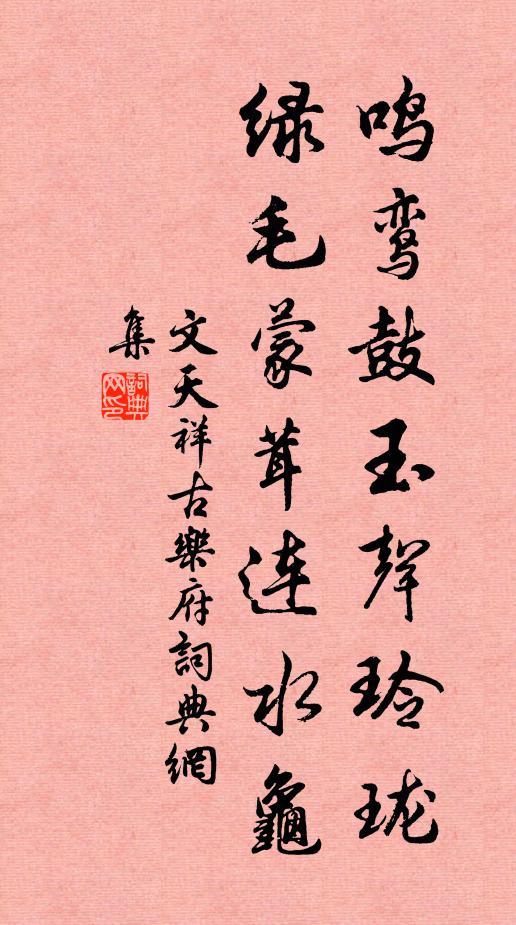 鸣鸾鼓玉声玲珑
绿毛蒙茸连水龜
文天祥古樂府詞典網
集
詞典网印